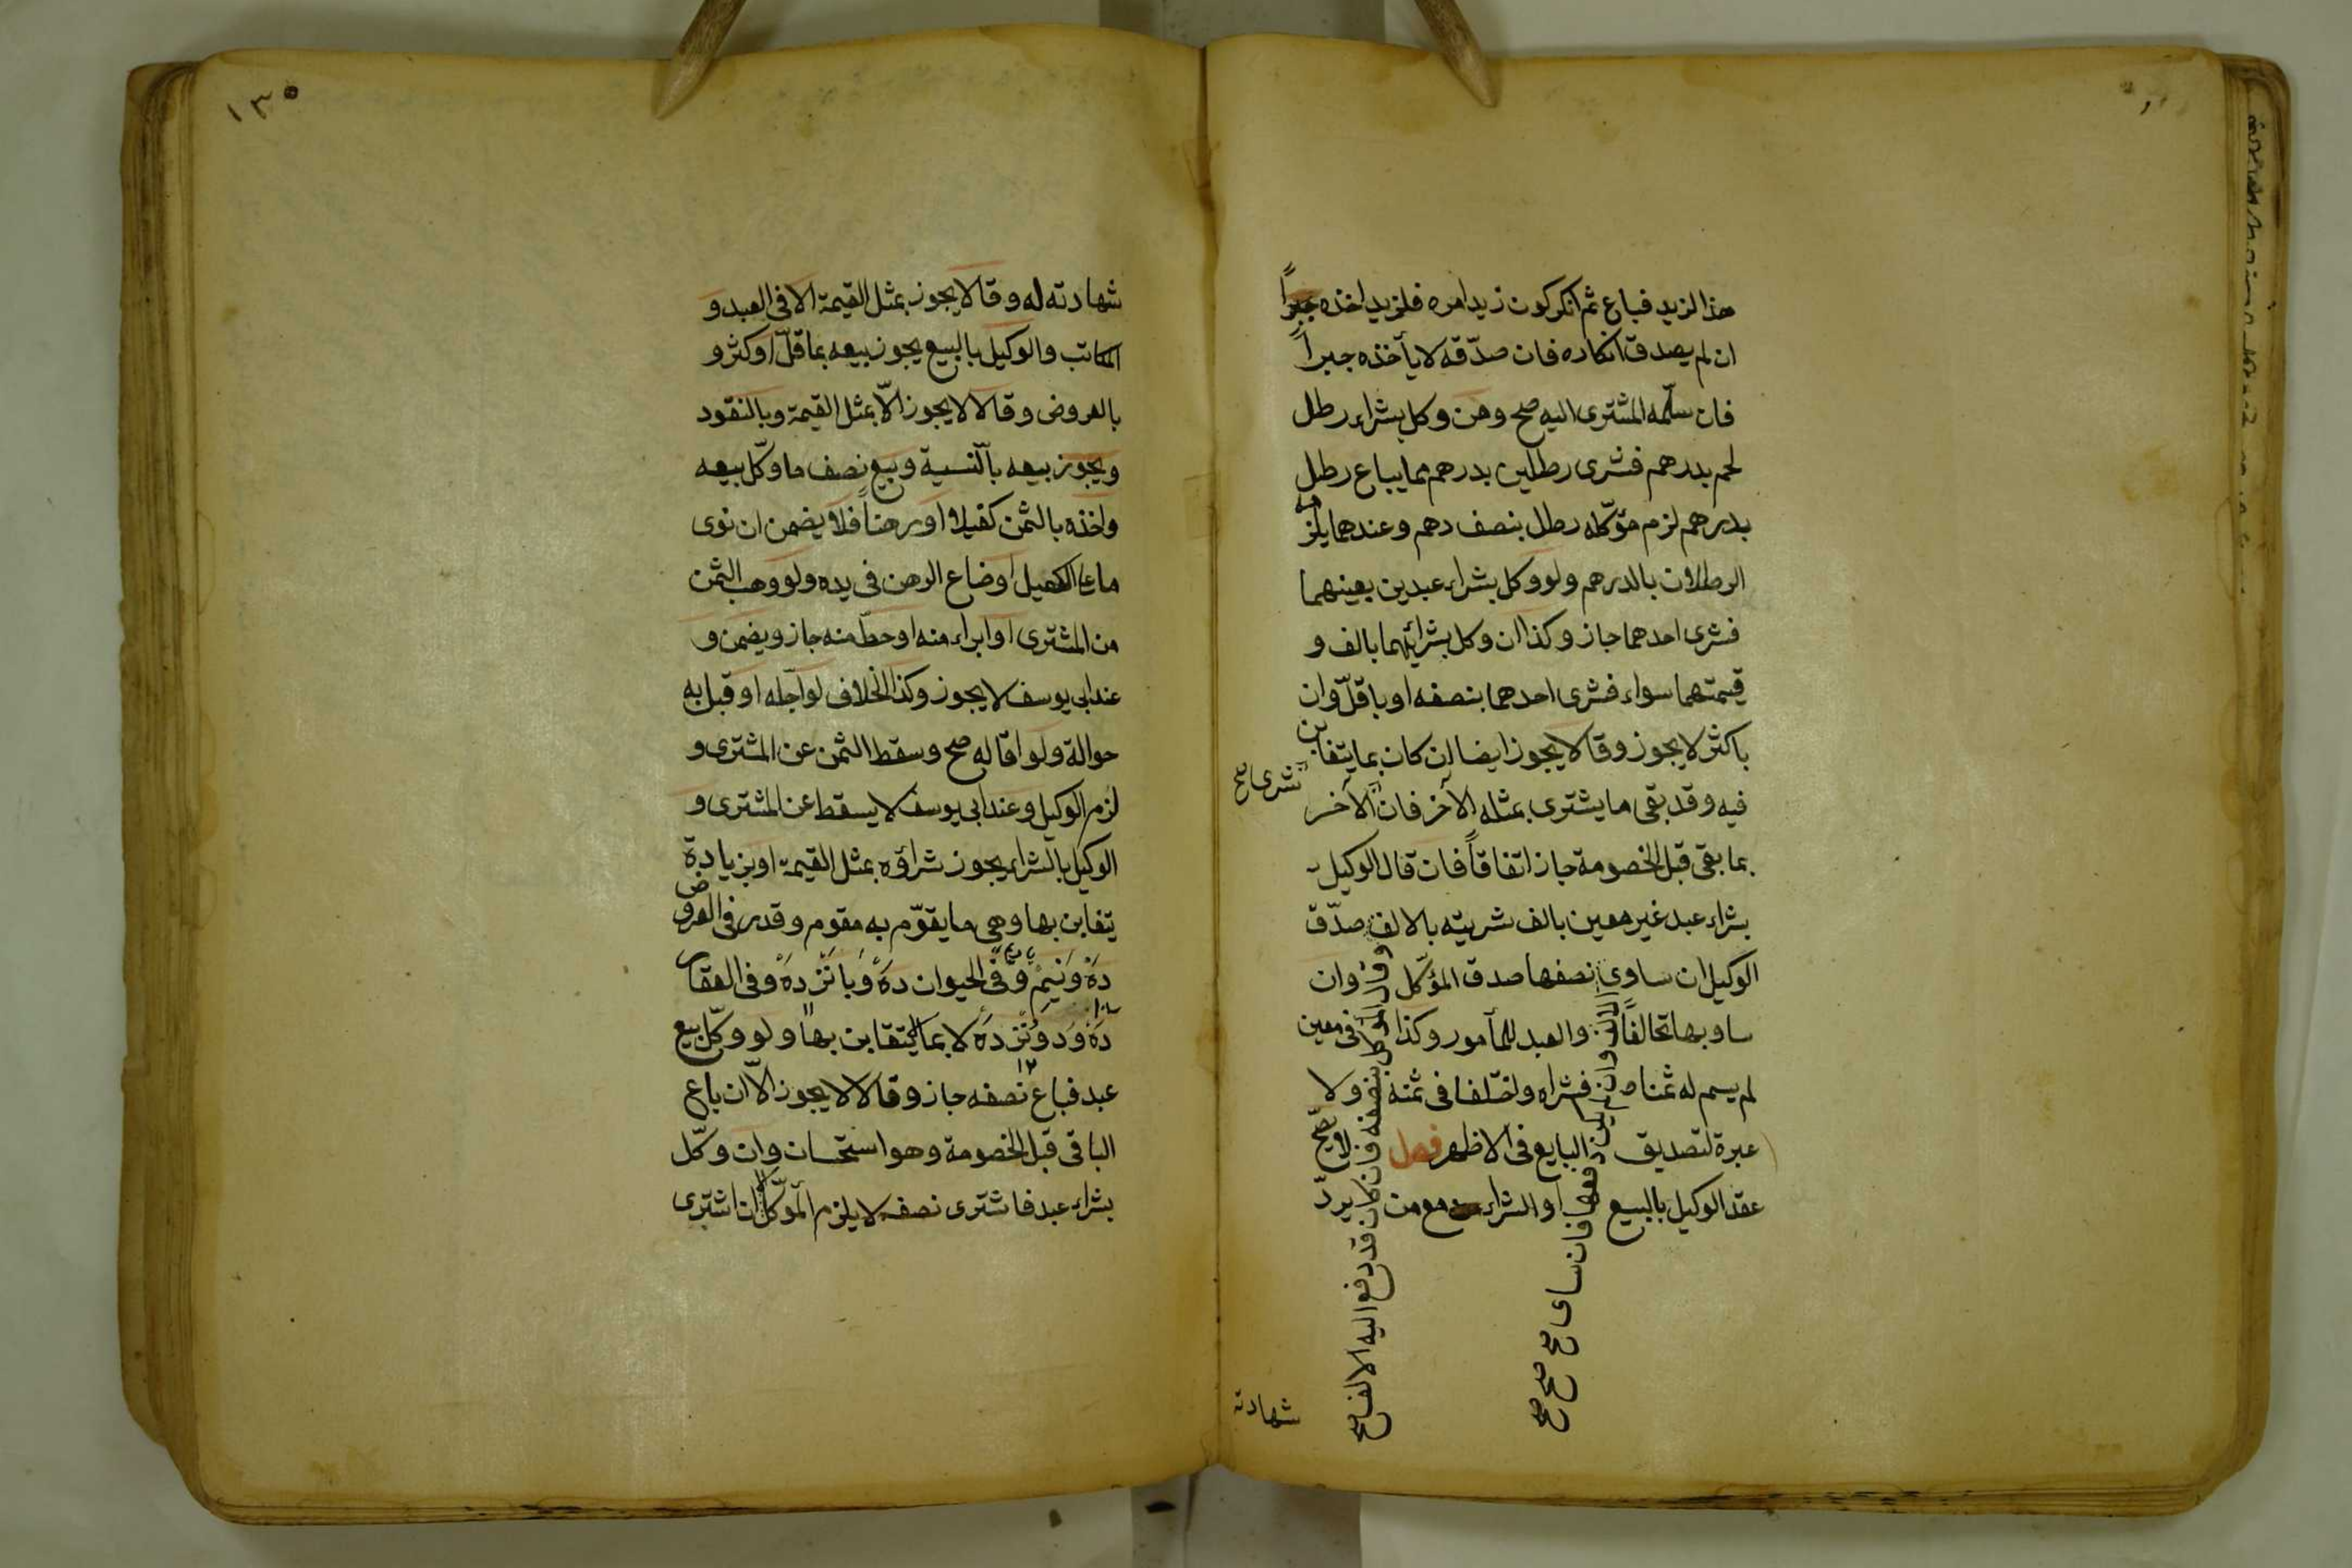 هذا لزيد فباع ثم انكر كون زيد امره فلزيد اخذه جبراً
ان لم يصدق انكاره فان صدّقه لا يأخذه جبراً
فان سلّمه المشترى اليه صح ومن وكل بشراء رطل
لحم بدرهم فشرى رطلين بدرهم مما يباع رطل
بدرهم لزم مؤكّله رطل بنصف دهم وعندهما يلزمه
الرطلان بالدرهم ولو وكل بشراء عبدين بعينهما
فشرى احدهما جاز وكذا ان وكل بشرائهما بالف و
قيمتهما سواء فشرى احدهما بنصفه او باقلّ وان
باكثر لا يجوز وقالا يجوز ايضا ان كان بما يتغابن
فيه وقد بقى ما يشترى بمثله الآخر فان الآخر
شرى صح
بما بقى قبل الخصومة جاز اتفاقاً فان قال الوكيل
بشراء عبد غير معين بالف شريته بالالف صدّق
الوكيل ان ساوى نصفها صدق المؤكّل وان
ساوبها تحالفاً والعبد للمأمور وكذا فى معين
لم يسم له ثمنا فشراه واختلفا فى ثمنه ولا
عبرة لتصديق البايع فى الاظهر فصل لا يصحّ
عقد الوكيل بالبيع او الشراء مع من يردّ
وقال الموكل بنصفه فان كان قد دفع اليه الالف صح
الالف وان لم يكن دفعها فان ساوى صح صح صح
شهادته
١٣٥
شهادته له وقالا يجوز بمثل القيمة الا فى العبد و
المكاتب والوكيل بالبيع يجوز بيعه بما قلّ او كثر و
بالعروض وقالا لا يجوز الّا بمثل القيمة وبالنقود
ويجوز بيعه بالنّسية وبيع نصف ما وكّل بيعه
واخذه بالثمن كفيلا او رهناً فلا يضمن ان توى
ما على الكفيل او ضاع الرهن فى يده ولو وهب الثمن
من المشترى او ابراء منه او حطّ منه جاز ويضمن و
عند ابى يوسف لا يجوز وكذا الخلاف لو اجّله او قبل به
حوالة ولو اقاله صح وسقط الثمن عن المشترى و
لزم الوكيل وعند ابى يوسف لا يسقط عن المشترى و
الوكيل بالشراء يجوز شراؤه بمثل القيمة او بزيادة
يتغابن بها وهى ما يقوّم به مقوم وقدر فى العروض
دَهْ وَنيمْ وفى الحيوان دَهْ وَيا نَزْ دهْ وفى العقار
دَهْ وَدوُنَزْدَهْ لا بما لا يتغابن بها ولو وكّل بيع
١٢
عبد فباع نصفه جاز وقالا لا يجوز الّا ان باع
الباقى قبل الخصومة وهو استحسان وان وكّل
بشراء عبد فاشترى نصفه لا يلزم المؤكّل الا ان اشترى